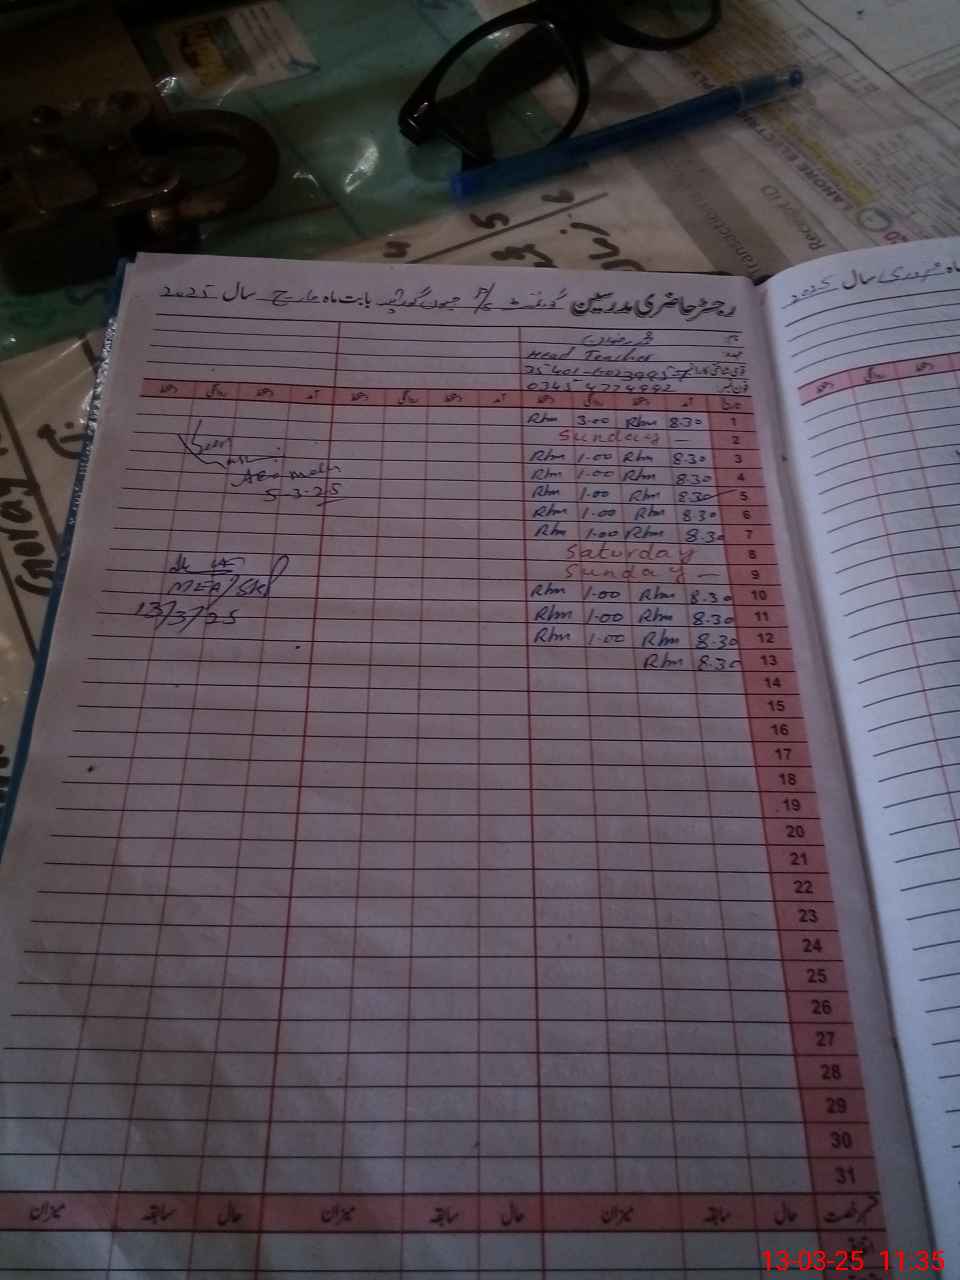 رجسٹر حاضری مدرسین گورنمنٹ P/S بابت ماہ مارچ سال 2025
نام
عہدہ Head Teacher
35401-6023995-7
فون نمبر 03454774892
تاریخ آمد دستخط روانگی دستخط آمد دستخط روانگی دستخط آمد دستخط روانگی دستخط
1 8.30 Rhm 3.00 Rhm
2 Sunday —
3 8.30 Rhm 1.00 Rhm
4 8.30 Rhm 1.00 Rhm
5 8.30 Rhm 1.00 Rhm
6 8.30 Rhm 1.00 Rhm
7 8.30 Rhm 1.00 Rhm
8 Saturday
9 Sunday —
10 8.30 Rhm 1.00 Rhm
11 8.30 Rhm 1.00 Rhm
12 8.30 Rhm 1.00 Rhm
13 8.30 Rhm
14
15
16
17
18
19
20
21
22
23
24
25
26
27
28
29
30
31
قسم رخصت حال سابقہ میزان حال سابقہ میزان حال سابقہ میزان
اتفاقیہ
Seen
5-3-25
MEA/SKP
13/3/25
سال 2025
روانگی دستخط
LAHORE ELECTRIC
Receipt ID
13-03-25 11:35